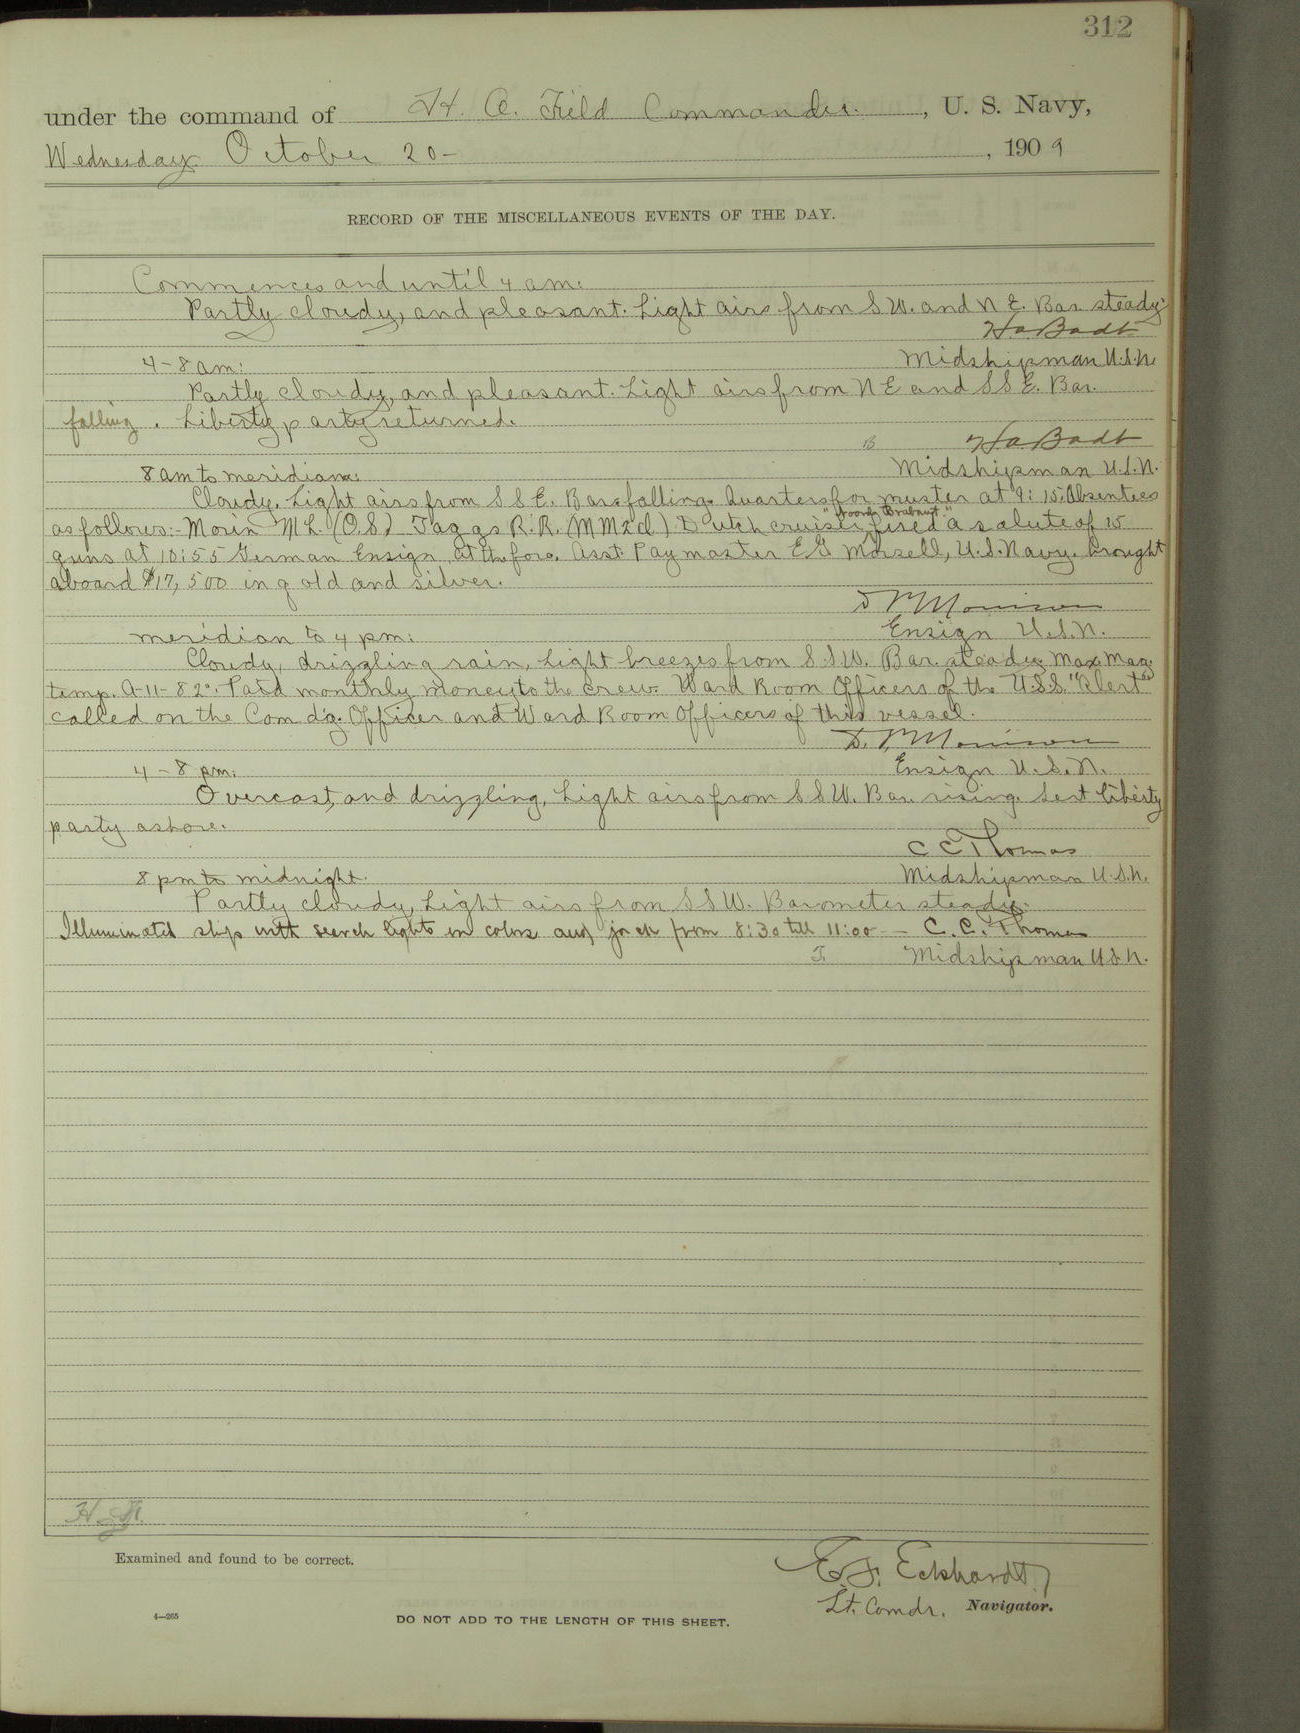 312
under the command of H. A. Field Commander, U. S. Navy,
Wednesday October 20 -, 1909
RECORD OF THE MISCELLANEOUS EVENTS OF THE DAY.
Commences and until 4 am:
Partly cloudy, and pleasant. Light airs from SW. and NE. Bar steady.
H.a. Badt
4-8 am:
Midshipman U.S.N.
Partly cloudy, and pleasant. Light airs from NE and SSE. Bar.
falling. Liberty party returned.
B H.a. Badt
Midshipman U.S.N.
8 am to meridian:
Cloudy. Light airs from SSE. Bar falling. Quarters for muster at 9:15. Absentees
"Noordt Brabant."
as follows:- Morin M L. (O.S.) Taggs R.R. (MM2d) Dutch cruiser fired a salute of 15
guns at 10:55 German Ensign at the fore. Asst. Paymaster E G Morsell, U.S. Navy. brought
aboard $17,500 in gold and silver.
D M Morrison
Ensign U.S.N.
meridian to 4 pm:
Cloudy, drizzling rain, Light breezes from SSW. Bar. steady. Max. Mag.
temp. A-11-82°. Paid monthly money to the crew. Ward Room Officers of the U.S.S. "Alert"
called on the Com'd'g. Officer and Ward Room Officers of this vessel.
D. M Morrison
4-8 pm:
Ensign U.S.N.
Overcast, and drizzling, Light airs from SSW. Bar. rising. Sent liberty
party ashore.
C C Thomas
8 pm to midnight.
Midshipman U.S.N.
Partly cloudy, Light airs from SSW. Barometer steady.
Illuminated ship with search lights in colors and jack from 8:30 till 11:00 - C. C. Thomas
T. Midshipman U.S.N.
Examined and found to be correct.
E. F. Eckhardt,
Lt. Comdr. Navigator.
4-265
DO NOT ADD TO THE LENGTH OF THIS SHEET.